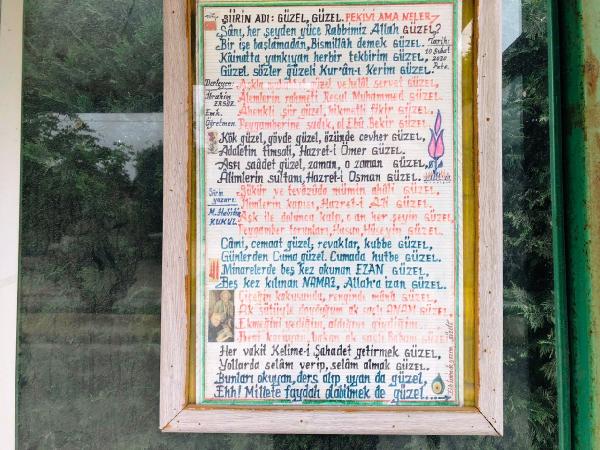 ŞİİRİN ADI: GÜZEL, GÜZEL. PEKİYİ AMA NELER GÜZEL?
Şânı, her şeyden yüce Rabbimiz Allah GÜZEL
Bir işe başlamadan, Bismillâh demek GÜZEL.
Kâinatta yankıyan herbir tekbirim GÜZEL,
Güzel sözler güzeli Kur'ân-ı Kerim GÜZEL.
Tarih:
10 Şubat
2020
Pzte.
Derleyen:
İbrahim
ERSÖZ
Emk.
Öğretmen.
güzel ve helâl servet GÜZEL,
Âlemlerin rahmeti Resul Muhammed GÜZEL.
Ahenkli şiir güzel, hikmetli fikir GÜZEL,
Peygamberine sadık, ol Ebû Bekir GÜZEL.
Kök güzel, gövde güzel, özünde cevher GÜZEL,
Adaletin timsali, Hazret-i Ömer GÜZEL.
Asrı saâdet güzel, zaman, o zaman GÜZEL,
Âlimlerin sultanı, Hazret-i Osman GÜZEL.
Şiirin
yazarı:
M. Halistin
KUKUL
Şükür ve tevâzûda mümin ahâli GÜZEL,
İlimlerin kapısı, Hazret-i Ali GÜZEL.
Aşk ile dolunca kalp, can her şeyin GÜZEL,
Peygamber torunları, Hasan, Hüseyin GÜZEL.
Câmi, cemaat güzel, revaklar, kubbe GÜZEL,
Günlerden Cuma güzel. Cumada hutbe GÜZEL.
Minarelerde beş kez okunan EZAN GÜZEL,
Beş kez kılınan NAMAZ, Allah'a izan GÜZEL.
Çiçeğin kokusunda, renginde mânâ GÜZEL,
Ak sütüyle doyduğum ak saçlı ANAM GÜZEL.
Ekmeğini yediğim, aldığım giydiğim
Beni koruyan, bakan ak saçlı Babam GÜZEL.
Her vakit Kelime-i Şahadet getirmek GÜZEL,
Yollarda selâm verip, selâm almak GÜZEL.
Bunları okuyan, ders alıp uyan da güzel,
Ehh! Millete faydalı olabilmek de güzel...